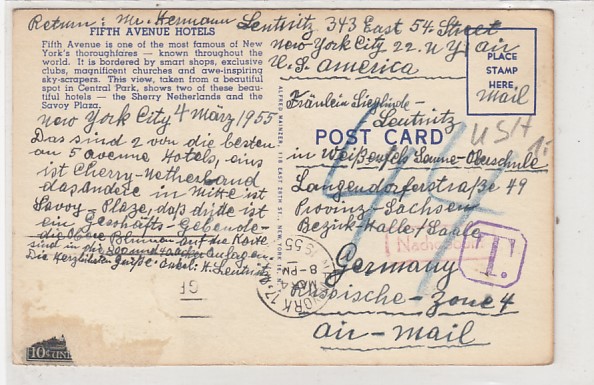 Return: Mr. Hermann Leutnitz, 343 East 54. Street
New York City 22. N.Y. air
U.S. America
FIFTH AVENUE HOTELS
Fifth Avenue is one of the most famous of New
York's thoroughfares — known throughout the
world. It is bordered by smart shops, exclusive
clubs, magnificent churches and awe-inspiring
sky-scrapers. This view, taken from a beautiful
spot in Central Park, shows two of these beau-
tiful hotels — the Sherry Netherlands and the
Savoy Plaza.
New York City 4 März 1955
Das sind 2 von die besten
an 5 avenue Hotels, eins
ist Cherry-Netherland
das andere in Mitte ist
Savoy-Plaze, das dritte ist
ein Geschäfts-Gebeude-
die obere Blumen auf die Karte
sind in der
Die Herzlichsten Grüße: Onkel: H. Leutnitz
10 CENTS
ALFRED MAINZER, 118 EAST 28TH ST., NEW YORK
PLACE
STAMP
HERE
Mail
Fräulein Sieglinde-
Leutnitz
POST CARD
USA
in Weißenfels Saune-Oberschule
Langendorferstraße 49
Provinz-Sachsen
Bezirk-Halle/Saale
Nachgebühr
T.
Germany
Rusische-Zone 4
air-mail
YORK 17
8-PM
1955
GF